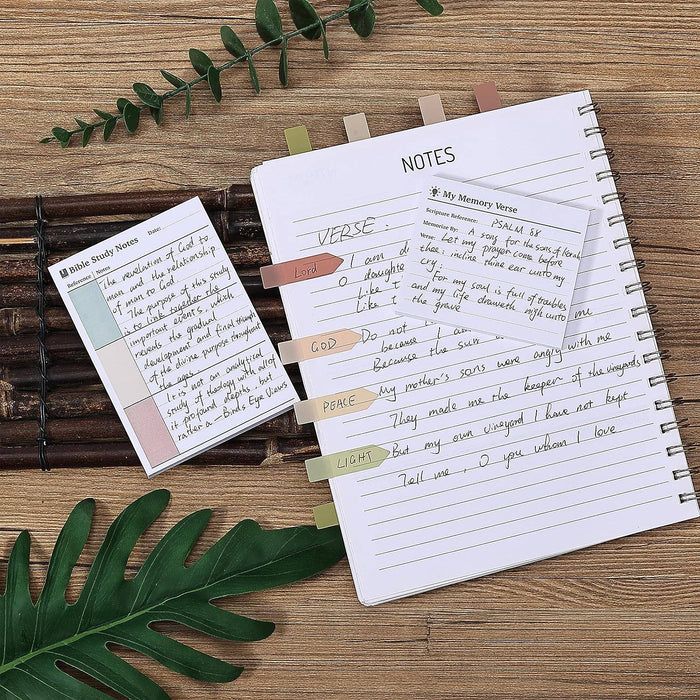 NOTES
VERSE:
I am d
O daughte
Like t
Like t
Do not
because I am
Because the sun
My mother's sons were angry with me
They made me the keeper of the vineyards
But my own vineyard I have not kept
Tell me, O you whom I love
Lord
GOD
PEACE
LIGHT
My Memory Verse
Scripture Reference: PSALM 88
Memorize By: A song for the sons of Korah
Verse: Let my prayer come before
thee: incline thine ear unto my
cry.
For my soul is full of troubles
and my life draweth nigh unto
the grave
Bible Study Notes Date:
Reference Notes
The revelation of God to
man and the relationship
of man to God.
The purpose of this study
is to link together the
important events, which
reveals the gradual
development and final triumph
of the divine purpose throughout
the ages.
It is not an analytical
study of theology with all of
it profound depths, but
rather a Birds Eye Views